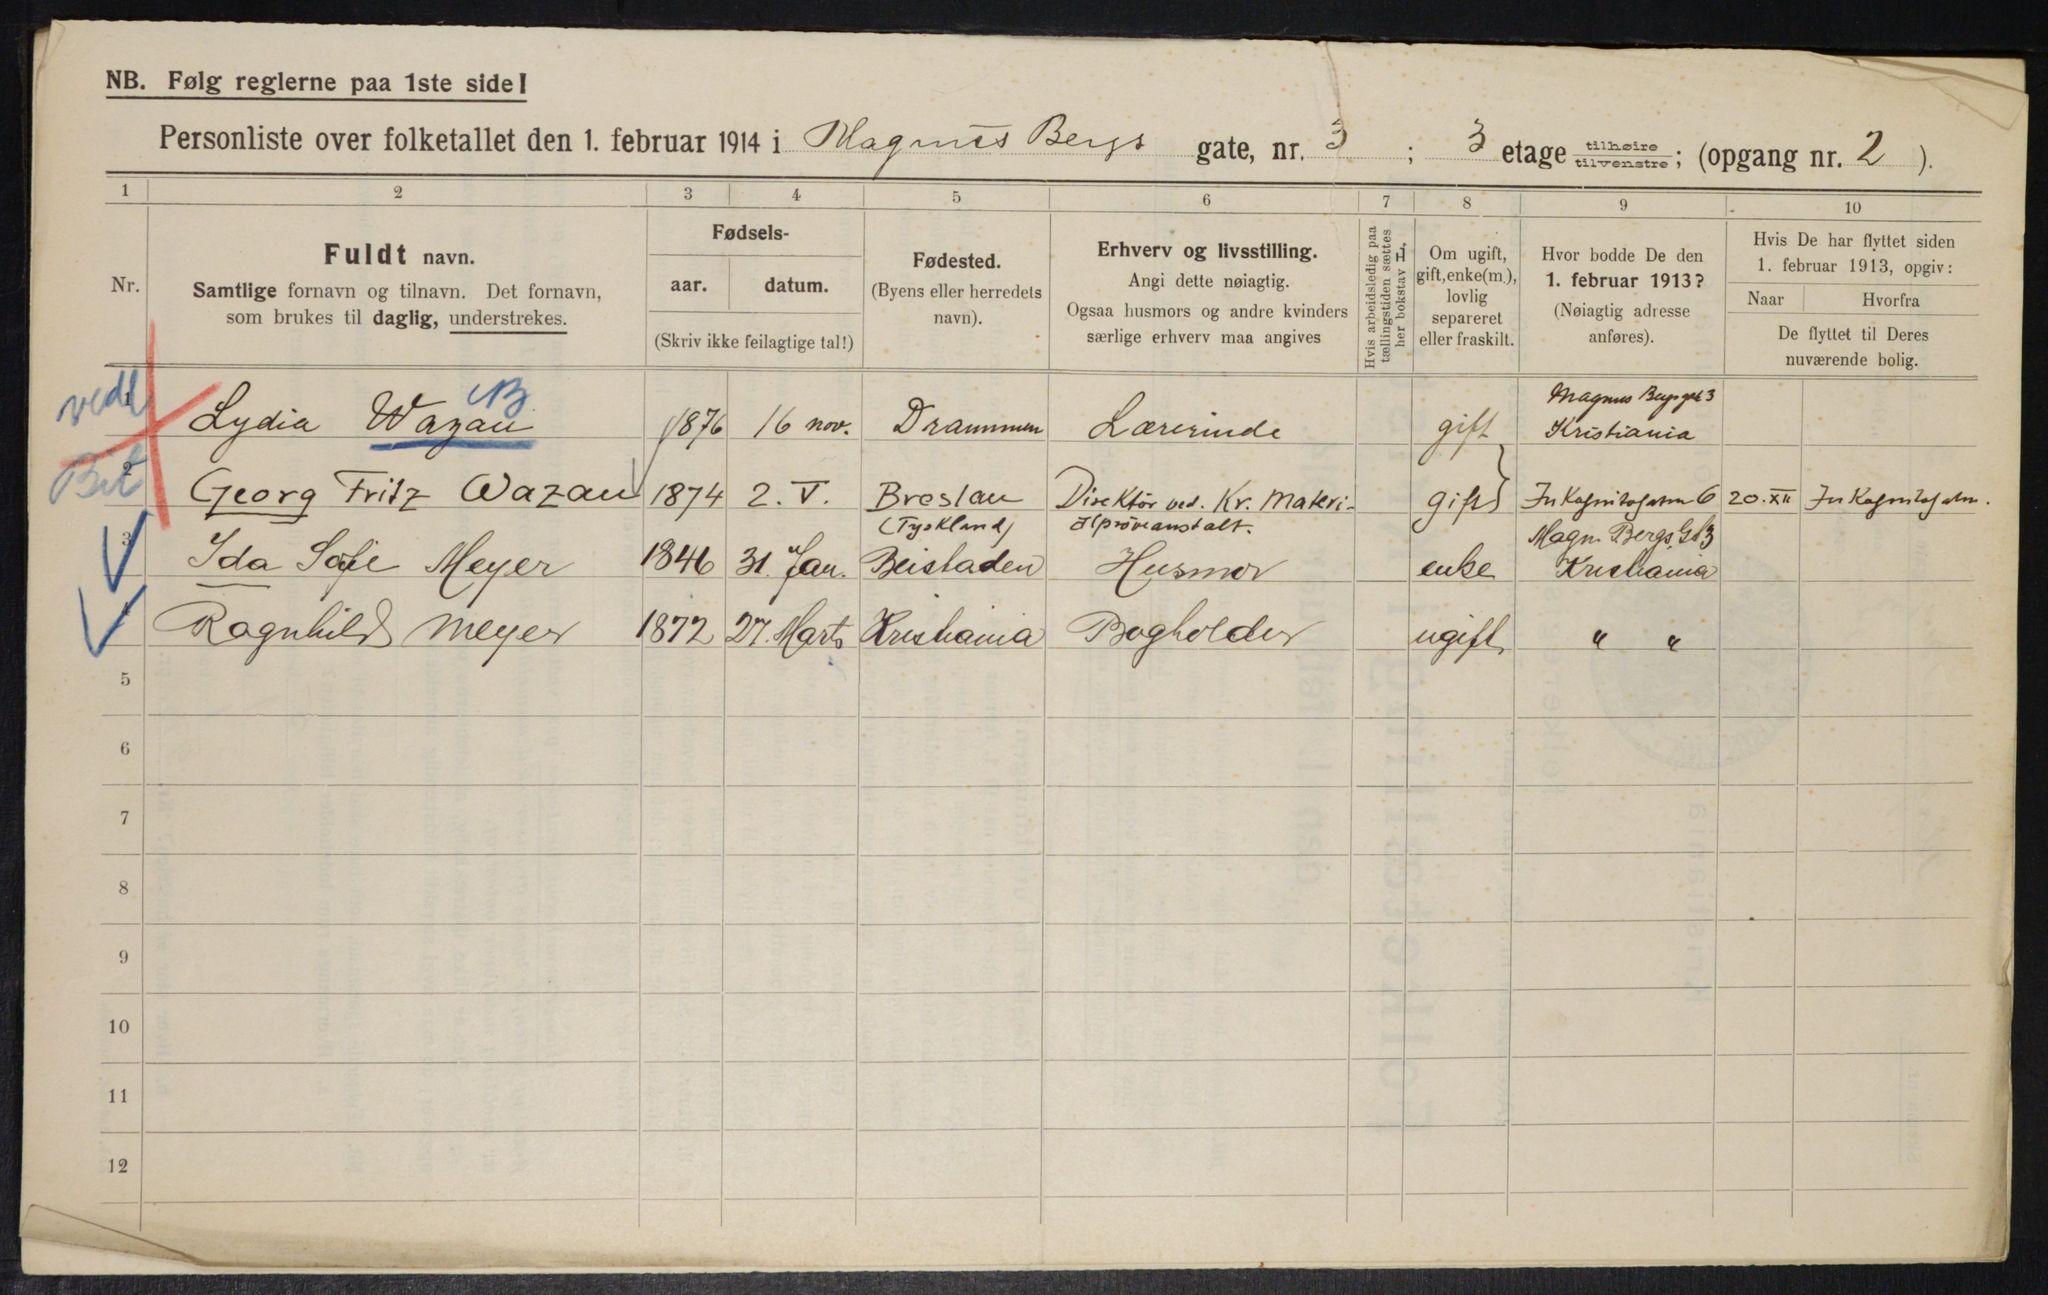 NB. Følg reglerne paa 1ste side!
Personliste over folketallet den 1. februar 1914 i Magnus Bergs gate, nr. 3 ; 3 etage tilhøire/tilvenstre; (opgang nr. 2 ).
1 2 3 4 5 6 7 8 9 10
Nr.
Fuldt navn.
Samtlige fornavn og tilnavn. Det fornavn,
som brukes til daglig, understrekes.
Fødsels-
aar. datum.
(Skriv ikke feilagtige tal!)
Fødested.
(Byens eller herredets
navn).
Erhverv og livsstilling.
Angi dette nøiagtig.
Ogsaa husmors og andre kvinders
særlige erhverv maa angives
Hvis arbeidsledig paa
tællingstiden sættes
her bokstav L.
Om ugift,
gift, enke(m.),
lovlig
separeret
eller fraskilt.
Hvor bodde De den
1. februar 1913?
(Nøiagtig adresse
anføres).
Hvis De har flyttet siden
1. februar 1913, opgiv:
Naar Hvorfra
De flyttet til Deres
nuværende bolig.
1 Lydia Wazau B 1876 16 nov. Drammen Lærerinde gift Magnus Bergsgt 3
Kristiania
2 Georg Fritz Wazau 1874 2. V. Breslau Direktör ved. Kr. Materi- gift 6 20. XII
(Tyskland) alpröveanstalt.
3 Ida Sofie Meyer 1846 31. Jan. Beistaden Husmor enke Magn. Bergs Gt 3
Kristiania
4 Ragnhild Meyer 1872 27. Marts Kristiania Bogholder ugift " "
5
6
7
8
9
10
11
12